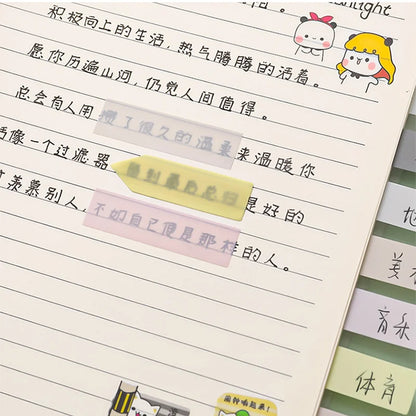 light
积极向上的生活，热气腾腾的活着。
愿你历遍山河，仍觉人间值得。
总会有人用攒了很久的温柔来温暖你
像一个过滤器 留到最后总归是好的
羡慕别人，
不如自己便是那样的人。
美
音乐
体育
闹钟响起来！